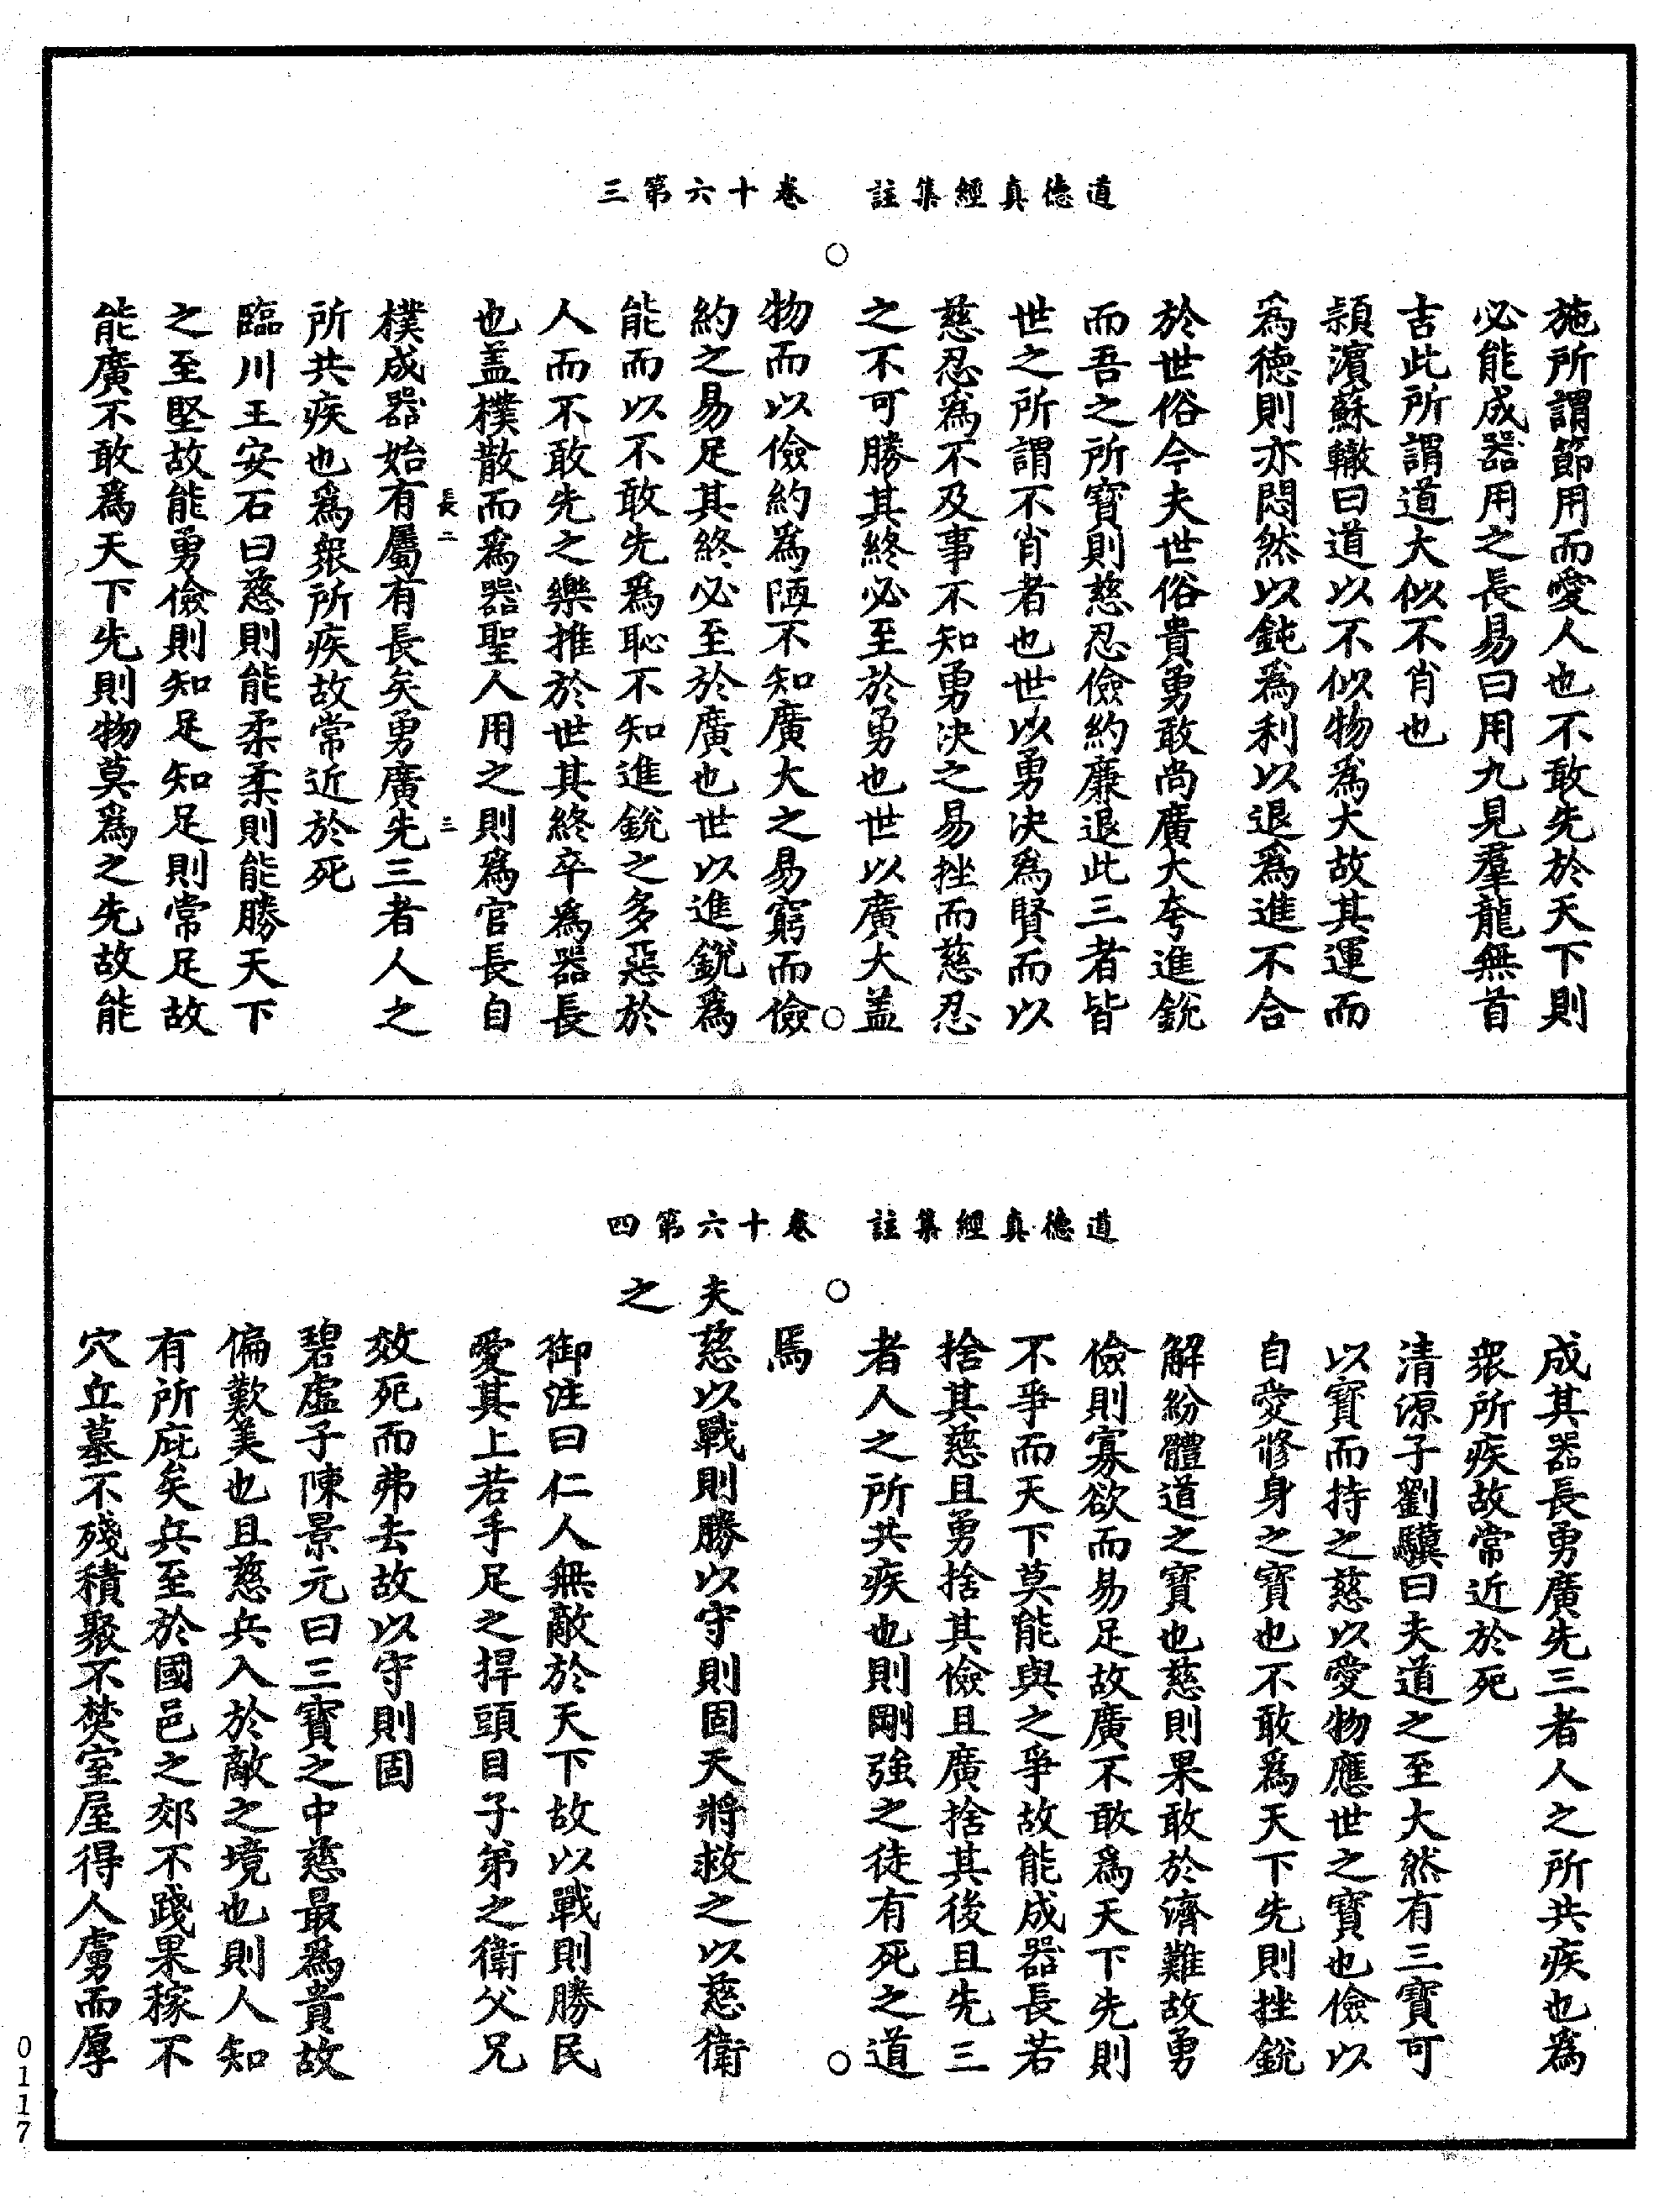 道德真經集註　卷十六第三
施所謂節用而愛人也不敢先於天下則
必能成器用之長易曰用九見羣龍無首
吉此所謂道大似不肖也
潁濵蘇轍曰道以不似物為大故其運而
為德則亦悶然以鈍為利以退為進不合
於世俗今夫世俗貴勇敢尚廣大夸進銳
而吾之所寶則慈忍儉約廉退此三者皆
世之所謂不肖者也世以勇決為賢而以
慈忍為不及事不知勇決之易挫而慈忍
之不可勝其終必至於勇也世以廣大盖
物而以儉約為陋不知廣大之易窮而儉
約之易足其終必至於廣也世以進銳為
能而以不敢先為恥不知進銳之多惡於
人而不敢先之樂推於世其終卒為器長
也盖樸散而為器聖人用之則為官長自
長二　三
樸成器始有屬有長矣勇廣先三者人之
所共疾也為衆所疾故常近於死
臨川王安石曰慈則能柔柔則能勝天下
之至堅故能勇儉則知足知足則常足故
能廣不敢為天下先則物莫為之先故能
道德真經集註　卷十六第四
成其器長勇廣先三者人之所共疾也為
衆所疾故常近於死
清源子劉驥曰夫道之至大然有三寶可
以寶而持之慈以愛物應世之寶也儉以
自愛修身之寶也不敢為天下先則挫銳
解紛體道之寶也慈則果敢於濟難故勇
儉則寡欲而易足故廣不敢為天下先則
不爭而天下莫能與之爭故能成器長若
捨其慈且勇捨其儉且廣捨其後且先三
者人之所共疾也則剛強之徒有死之道
焉
夫慈以戰則勝以守則固天將救之以慈衛
之
御注曰仁人無敵於天下故以戰則勝民
愛其上若手足之捍頭目子弟之衛父兄
效死而弗去故以守則固
碧虛子陳景元曰三寶之中慈最為貴故
偏歎美也且慈兵入於敵之境也則人知
有所庇矣兵至於國邑之郊不踐果稼不
穴丘墓不殘積聚不焚室屋得人虜而厚
0117